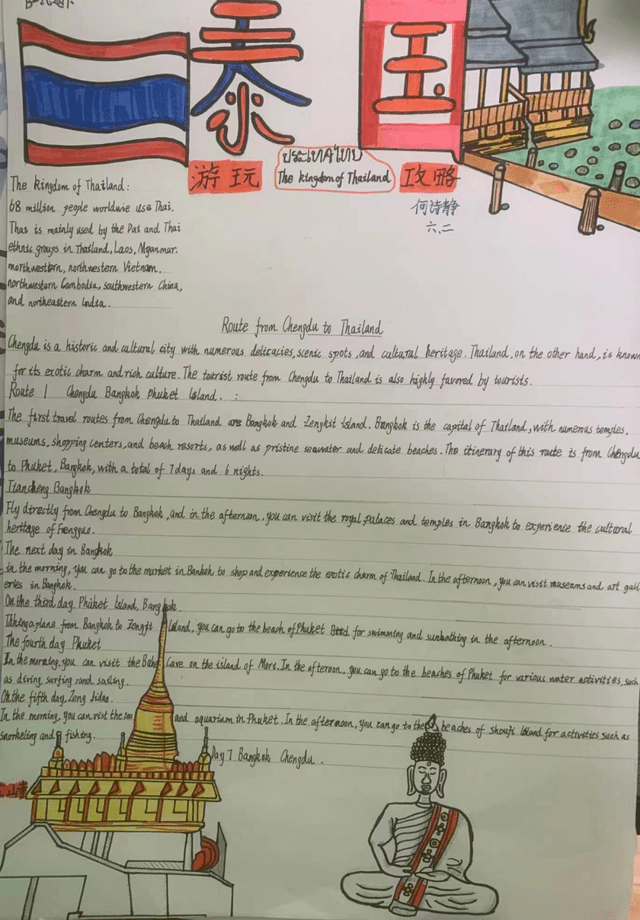 泰国
游玩
ประเทศไทย
The kingdom of Thailand
攻略
何诗静
六、二
The Kingdom of Thailand:
68 million people worldwie use Thai.
Thas is mainly used by the Das and Thai
ethnic groups in Thailand, Laos, Myanmar.
northwestern, northwestern Vietnam.
northwestern Cambodia, southwestern China,
and northeastern India.
Route from Chengdu to Thailand
Chengdu is a historic and cultural city with numerous delicacies, scenic spots, and cultural heritage. Thailand, on the other hand, is known
for its exotic charm and rich culture. The tourist route from Chengdu to Thailand is also highly favored by tourists.
Route 1 Chengdu Bangkok Phuket Island. :
The first travel routes from Chengdu to Thailand are Bangkok and Zengkst Island. Bangkok is the capital of Thailand, with numerus temples,
museums, shopping centers, and beach resorts, as well as pristine seawater and delicate beaches. The itinerary of this route is from Chengdu
to Phuket, Bangkok, with a total of 7 days and 6 nights.
Tiancheng Bangkok
Fly directly from Chengdu to Bangkok, and in the afternoon, you can visit the royal palaces and temples in Bangkok to experience the cultural
heritage of
The next day in Bangkok
in the morning, you can go to the market in Bankok to shop and experience the exotic charm of Thailand. In the afternoon, you can visit museums and art gall
eries in Bangkok.
On the third day, Phuket Island, Bangkok
a plane from Bangkok to Island, you can go to the beach of Phuket for swimming and sunbathing in the afternoon.
The fourth day Phuket
In the morning, you can visit the Cave on the island of Mors. In the afteroon, you can go to the beaches of Phuket for various water activities, such
as diving, surfing, and sailing.
On the fifth day, Zeng
In the morning, you can visit the zoo and aquarium in Phuket. In the afternoon, you can go to the beaches of Island for activities such as
snorkeling and fishing.
Day 7 Bangkok Chengdu.